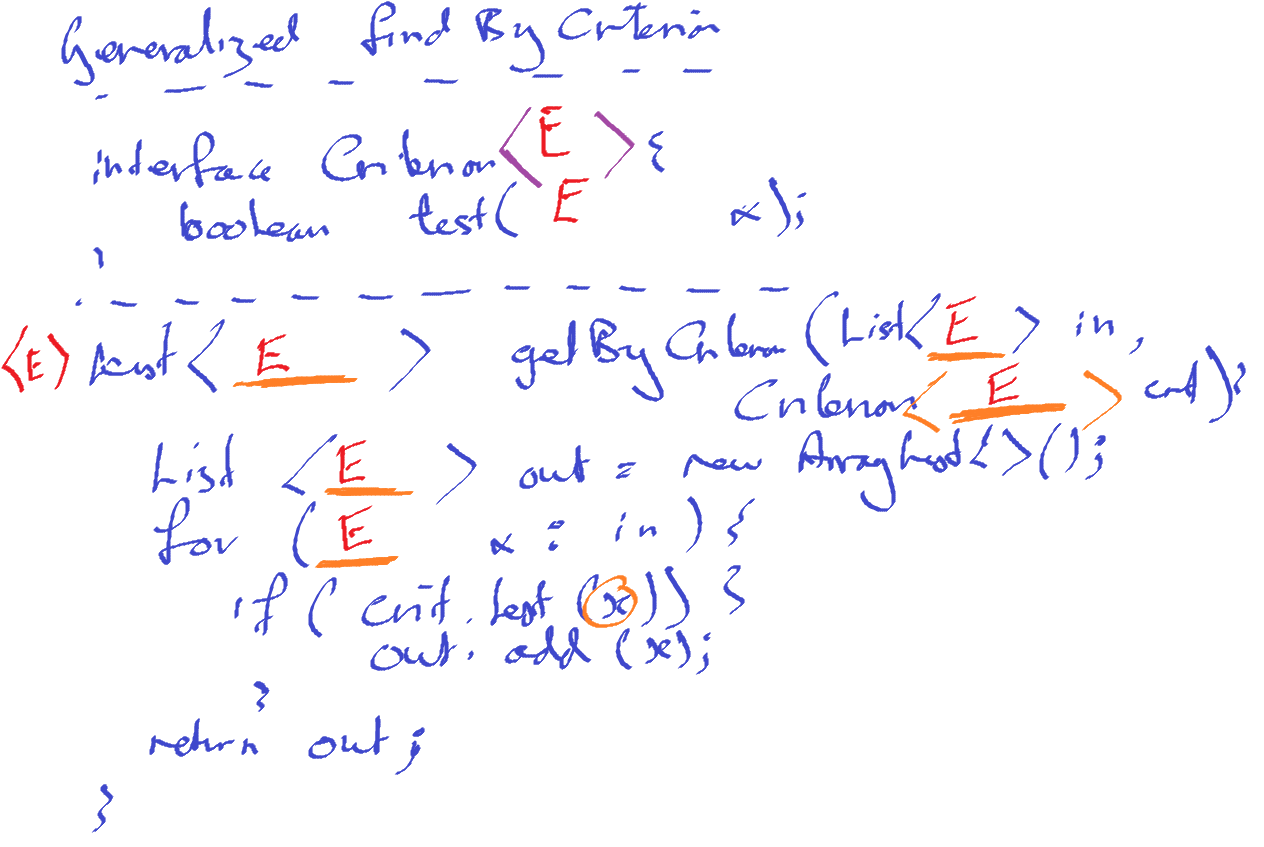 Generalized find By Criterion
interface Criterion<E> {
boolean test( E x);
}
<E> List< E > getByCriterion (List< E > in,
Criterion< E > crit){
List < E > out = new ArrayList<>();
for ( E x : in ) {
if ( crit.test (x)) {
out.add (x);
}
return out;
}